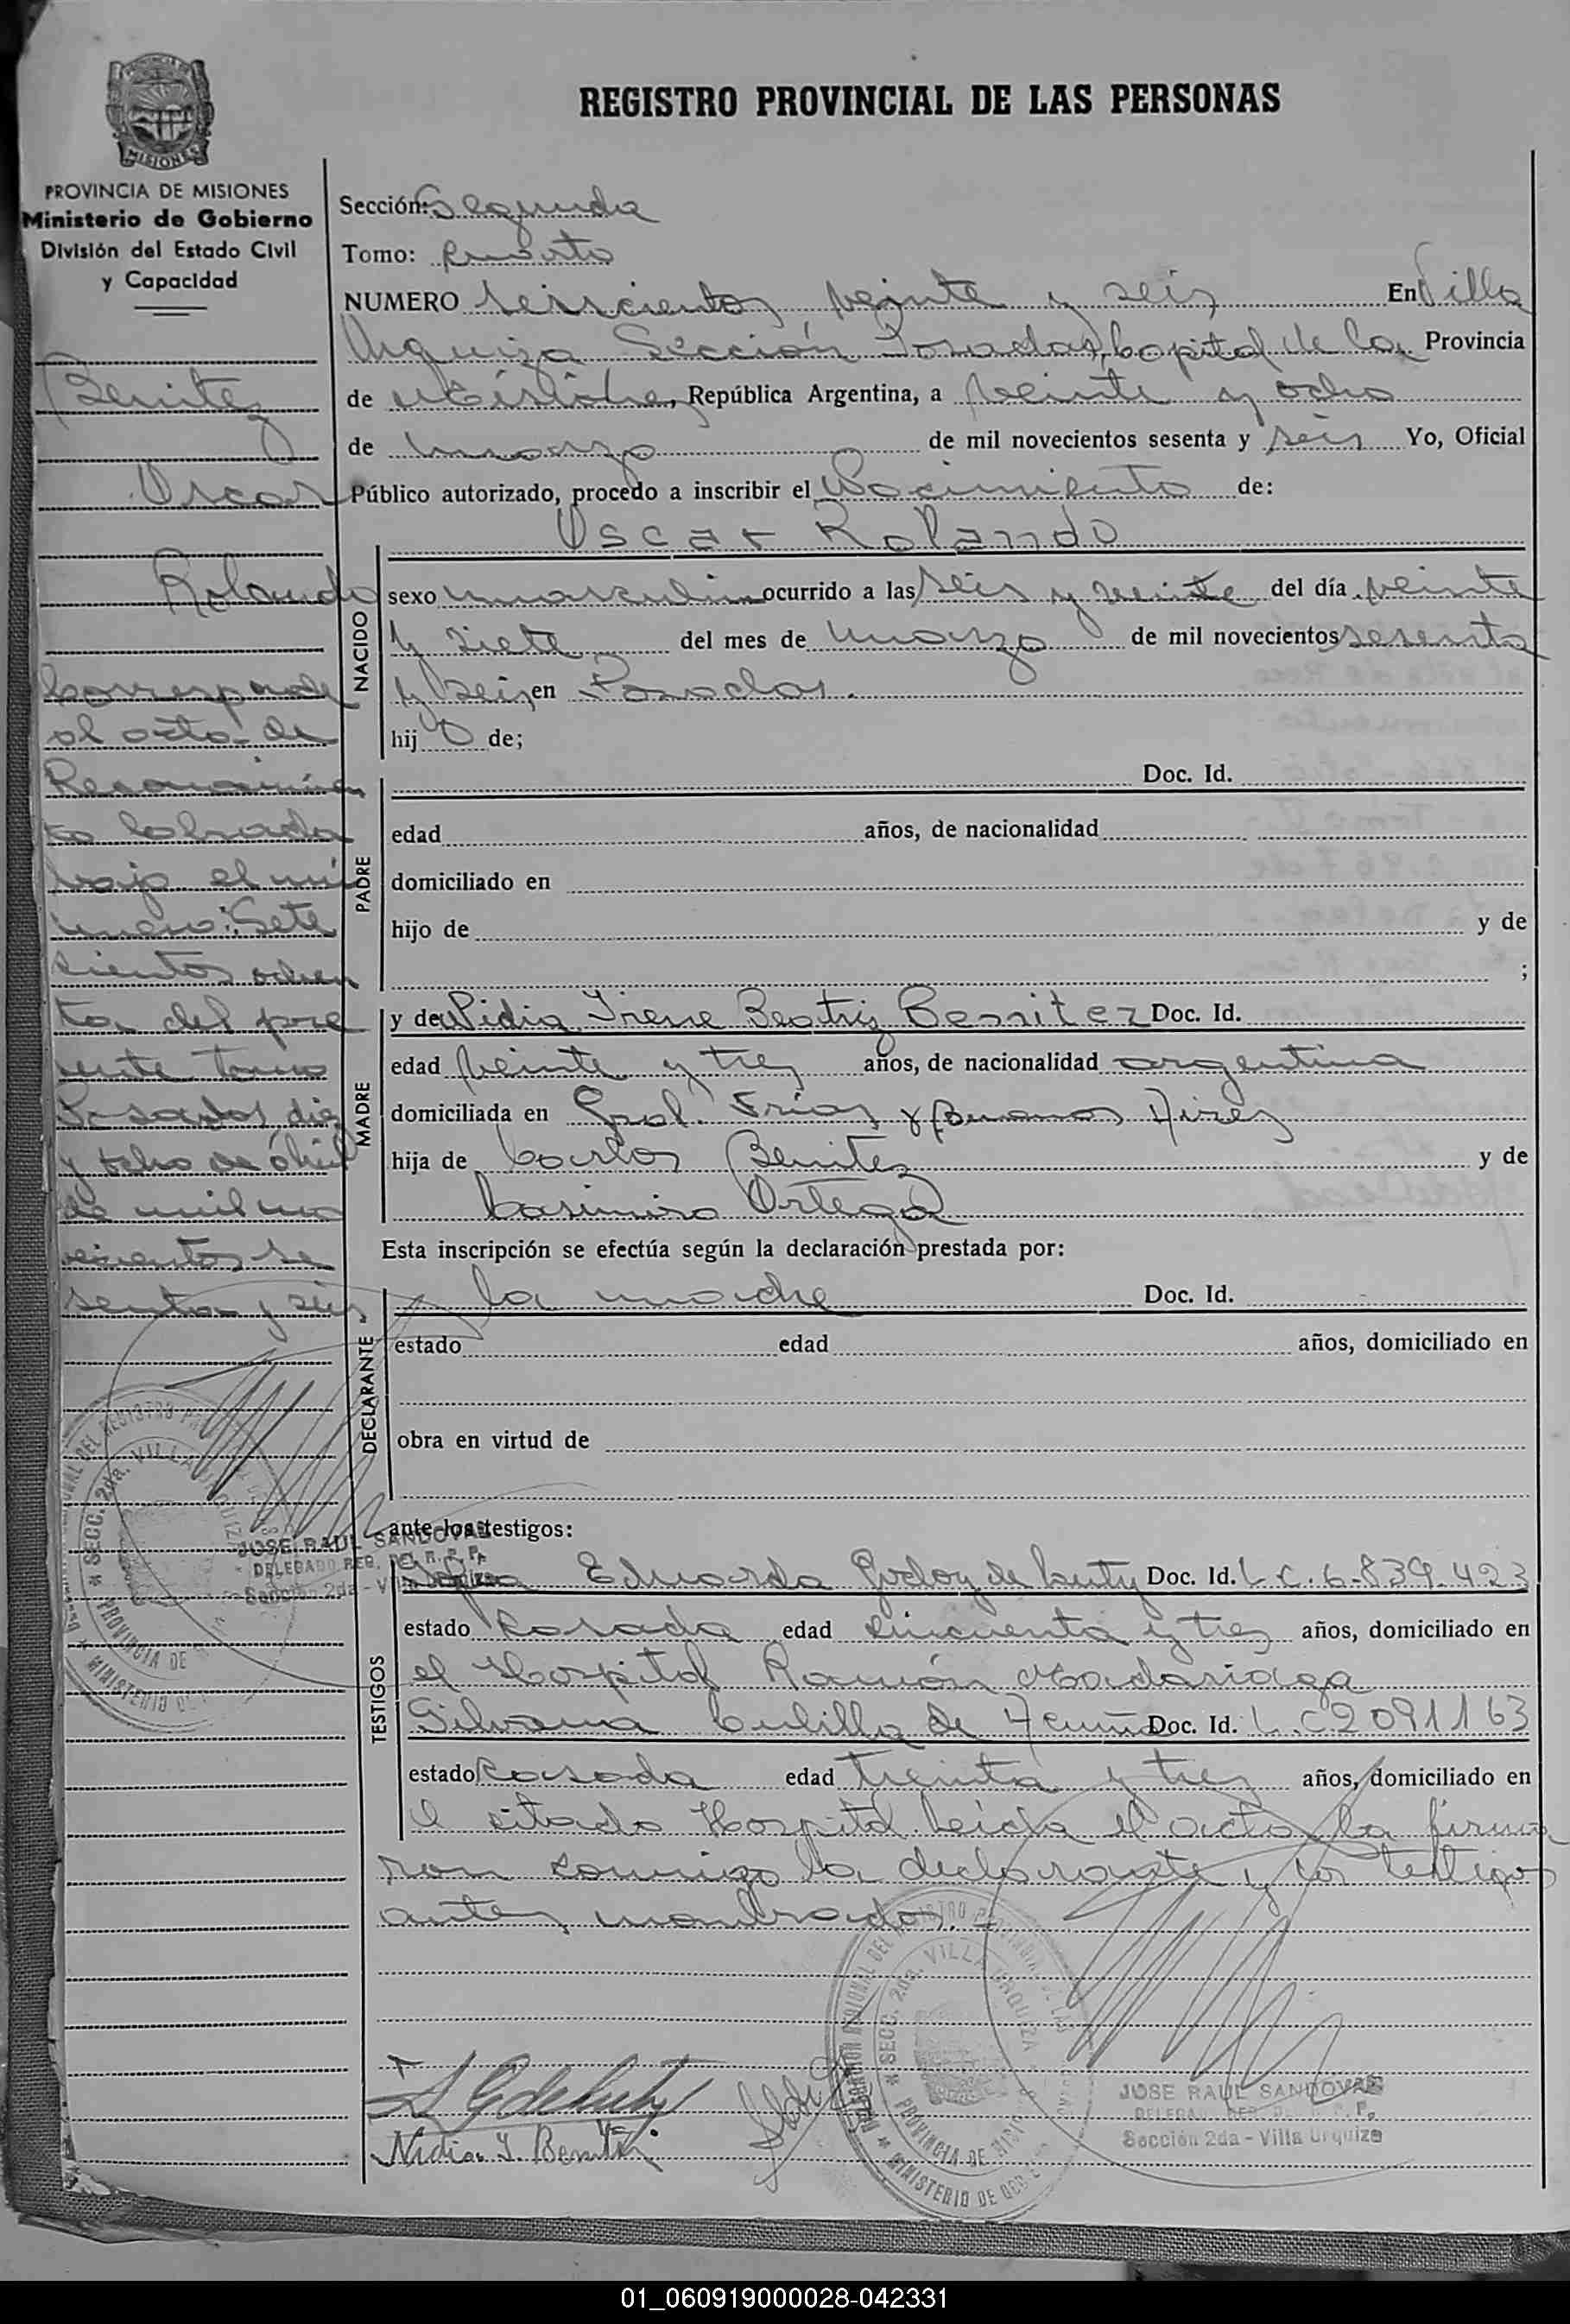 PROVINCIA DE MISIONES
MISIONES
PROVINCIA DE MISIONES
Ministerio de Gobierno
División del Estado Civil
y Capacidad
Benitez
Oscar
Rolando
Corresponde
al acta de
Reconocimien
to labrada
bajo el nú
mero: Sete
cientos ochen
ta del pre
sente tomo
Posadas, diez
y ocho de abril
de mil no
vecientos se
senta y seis
JOSE RAUL SANDOVAL
DELEGADO REG. DEL R. P. P.
Sección 2da - V
REGISTRO PROVINCIAL DE LAS PERSONAS
Sección: Segunda
Tomo:
NUMERO seiscientos veinte y seis En Villa
Urquiza Sección Posadas, Capital de la Provincia
de Misiones, República Argentina, a veinte y ocho
de marzo de mil novecientos sesenta y seis Yo, Oficial
Público autorizado, procedo a inscribir el Nacimiento de:
Oscar Rolando
NACIDO
sexo masculino ocurrido a las seis y veinte del día veinte
y siete del mes de marzo de mil novecientos sesenta
y seis en Posadas.
hijo de;
PADRE
Doc. Id.
edad años, de nacionalidad
domiciliado en
hijo de y de
;
MADRE
y de Nidia Irene Beatriz Benitez Doc. Id.
edad veinte y tres años, de nacionalidad argentina
domiciliada en Gral. Frías y Buenos Aires
hija de Carlos Benitez y de
Casimira Ortega
Esta inscripción se efectúa según la declaración prestada por:
DECLARANTE
la madre Doc. Id.
estado edad años, domiciliado en
obra en virtud de
ante los testigos:
TESTIGOS
Eduarda Godoy de Doc. Id. L.C. 6.839.423
estado casada edad cincuenta y tres años, domiciliado en
el Hospital Ramón Madariaga
Silvana de Acuña Doc. Id. L.C 2091163
estado casada edad treinta y tres años, domiciliado en
el sitado Hospital. Leída el acta la firma
ron conmigo la declarante y los testigos
antes nombrados.-
Nidia I. Benitez
SECC. 2da. VILLA URQUIZA
PROVINCIA DE MISIONES
MINISTERIO DE GOB
JOSE RAUL SANDOVAL
DELEGADO REG. DEL R. P. P.
Sección 2da - Villa Urquiza
01_060919000028-042331